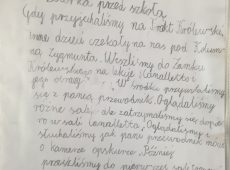 Zbiórka przed szkołą
Gdy przyjechaliśmy na Trakt Królewski,
inne dzieci czekały na nas pod Kolum
ną Zygmunta. Weszliśmy do Zamku
Królewskiego na lekcję "Canaletto i
jego W środku przywitaliśmy
się z panią przewodnik. Oglądaliśmy
różne sale, ale zatrzymaliśmy się dopie
ro w sali Canaletta. Oglądaliśmy i
słuchaliśmy jak pani przewodnik mówi
o kamerze opskurze. Później
przeszliśmy do pierwszej sali